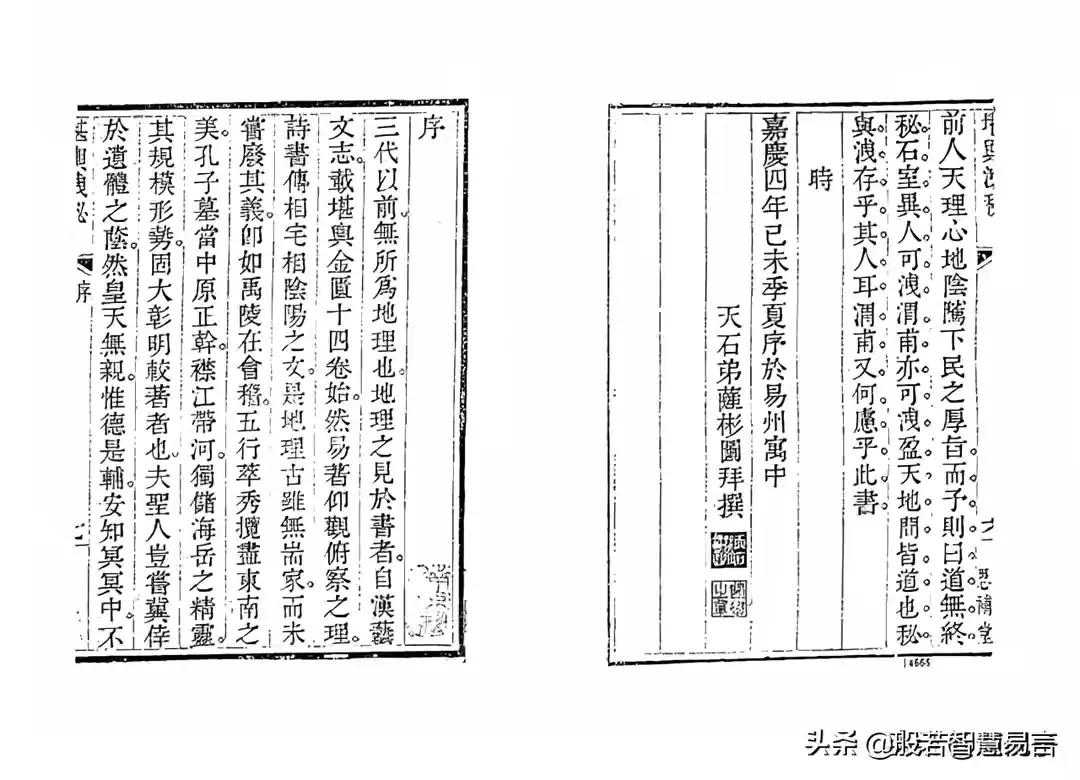 堪輿洩秘
前人天理心地陰騭下民之厚旨。而予則曰道無終
秘。石室異人可洩。渭甫亦可洩。盈天地間皆道也。秘
與洩存乎其人耳。渭甫又何慮乎此書。
時
嘉慶四年己未季夏序於易州寓中
天石弟薩彬圖拜撰
六
思補堂
14665
序
三代以前。無所為地理也。地理之見於書者。自漢藝
文志。載堪輿金匱十四卷始。然易著仰觀俯察之理。
詩書傳相宅相陰陽之文。是地理古雖無耑家。而未
嘗廢其義。卽如禹陵在會稽。五行萃秀。攬盡東南之
美。孔子墓當中原正幹。襟江帶河。獨儲海岳之精靈。
其規模形勢。固大彰明較著者也。夫聖人豈嘗冀倖
於遺體之蔭。然皇天無親。惟德是輔。安知冥冥中。不
堪輿洩秘
序
七
头条 @般若智慧易言